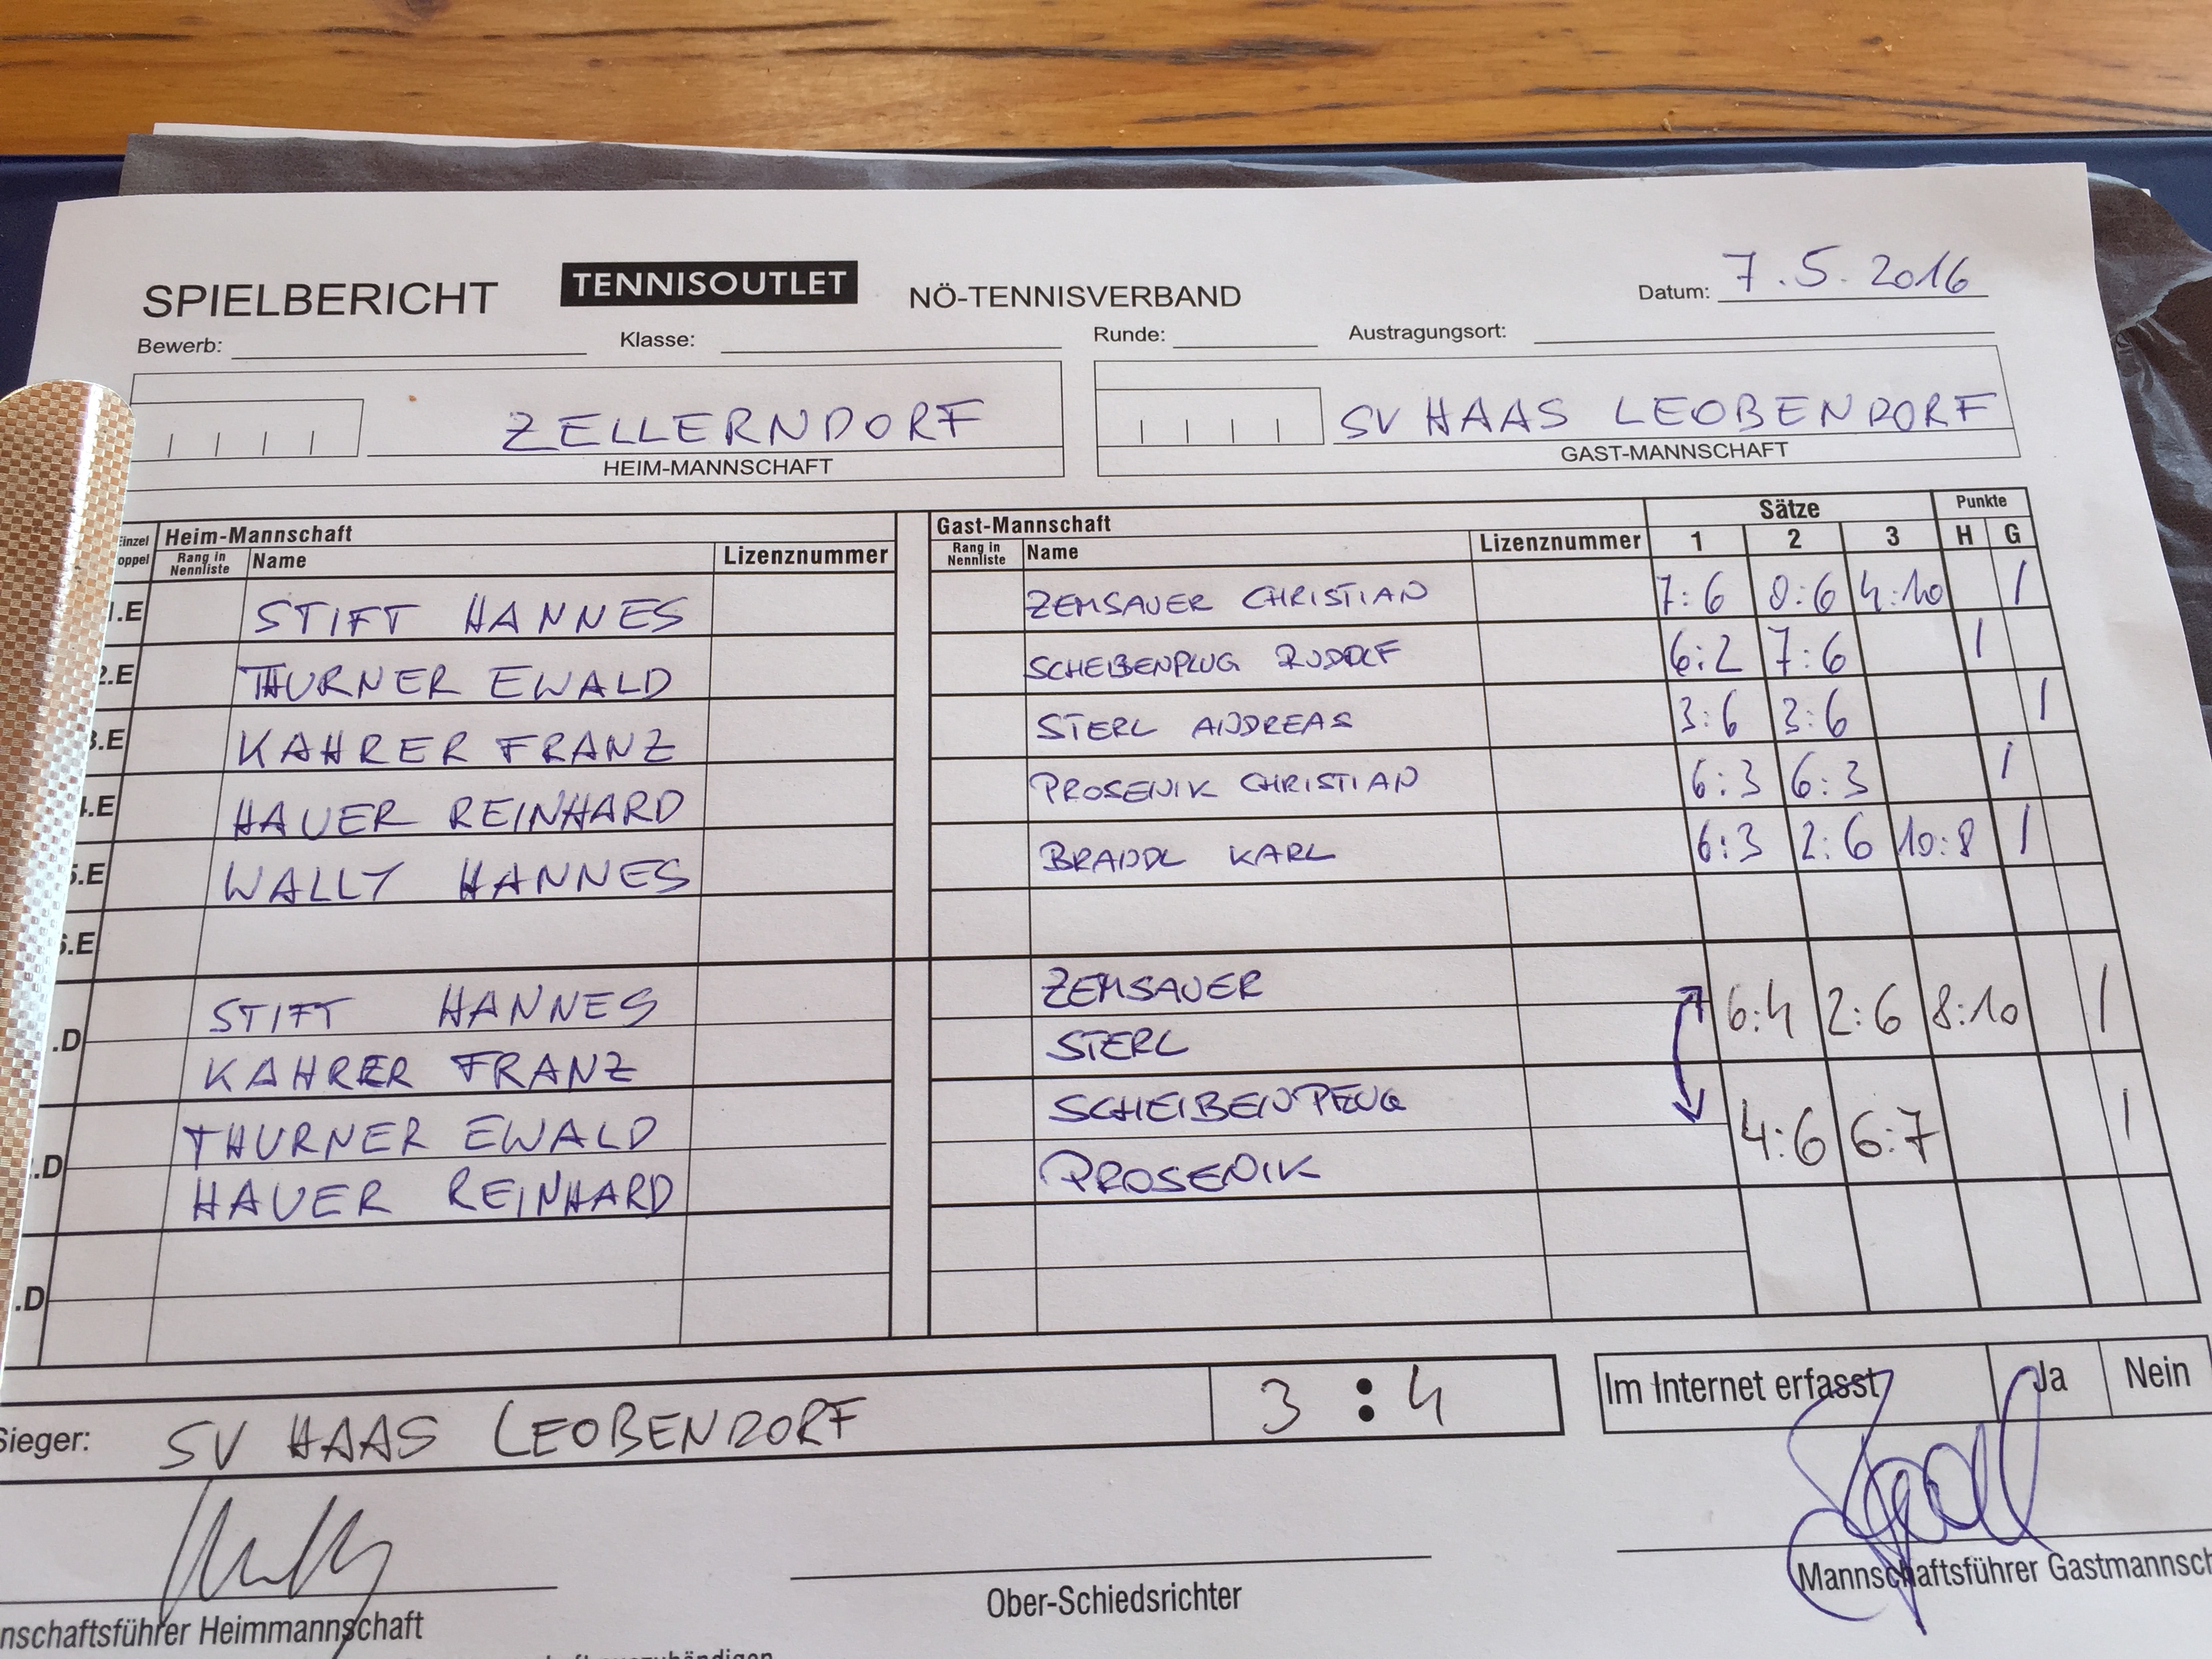 SPIELBERICHT TENNISOUTLET NÖ-TENNISVERBAND Datum: 7.5.2016
Bewerb: Klasse: Runde: Austragungsort:
ZELLERNDORF SV HAAS LEOBENDORF
HEIM-MANNSCHAFT GAST-MANNSCHAFT
Einzel Heim-Mannschaft Gast-Mannschaft Sätze Punkte
oppel Rang in Nennliste Name Lizenznummer Rang in Nennliste Name Lizenznummer 1 2 3 H G
1.E STIFT HANNES ZEMSAUER CHRISTIAN 7:6 0:6 4:10 /
2.E THURNER EWALD SCHEIBENPLUG RUDOLF 6:2 7:6 /
3.E KAHRER FRANZ STERL ANDREAS 3:6 3:6 /
4.E HAUER REINHARD PROSENIK CHRISTIAN 6:3 6:3 /
5.E WALLY HANNES BRANDL KARL 6:3 2:6 10:8 /
6.E
.D STIFT HANNES ZEMSAUER 6:4 2:6 8:10 /
KAHRER FRANZ STERL
.D THURNER EWALD SCHEIBENPFLUG 4:6 6:7 /
HAUER REINHARD PROSENIK
.D
Sieger: SV HAAS LEOBENDORF 3 : 4 Im Internet erfasst Ja Nein
nschaftsführer Heimmannschaft Ober-Schiedsrichter Mannschaftsführer Gastmannsch